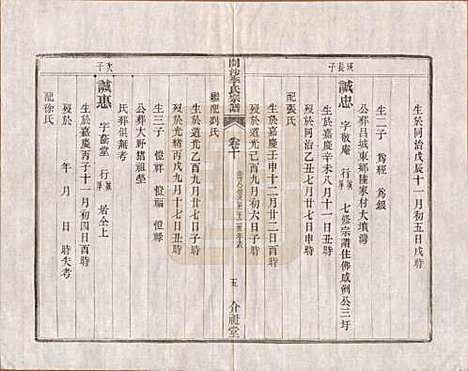 生於同治戊辰十一月初五日戌時
生二子 為經 為銀
公葬邑城東鄉陸家村大墳灣
瑛長子
誠忠 字敬庵 行 七修宗譜住佛咸洲公三圩
生於嘉慶辛未八月十一日丑時
歿於同治乙丑七月廿七日申時
配張氏
生於嘉慶壬申十二月廿二日酉時
歿於道光己酉九月初六日子時
繼配劉氏
開沙李氏宗譜
卷十
五 介祉堂
生於道光乙酉九月廿七日子時
歿於光緒丙戌九月十七日丑時
生三子 愷祥 愷福 愷祿
公葬大野猪祖塋
氏葬俱無考
次子
誠惠 字蕃堂 行 居仝上
生於嘉慶丙子十一月初四日酉時
歿於 年 月 日 時失考
配徐氏